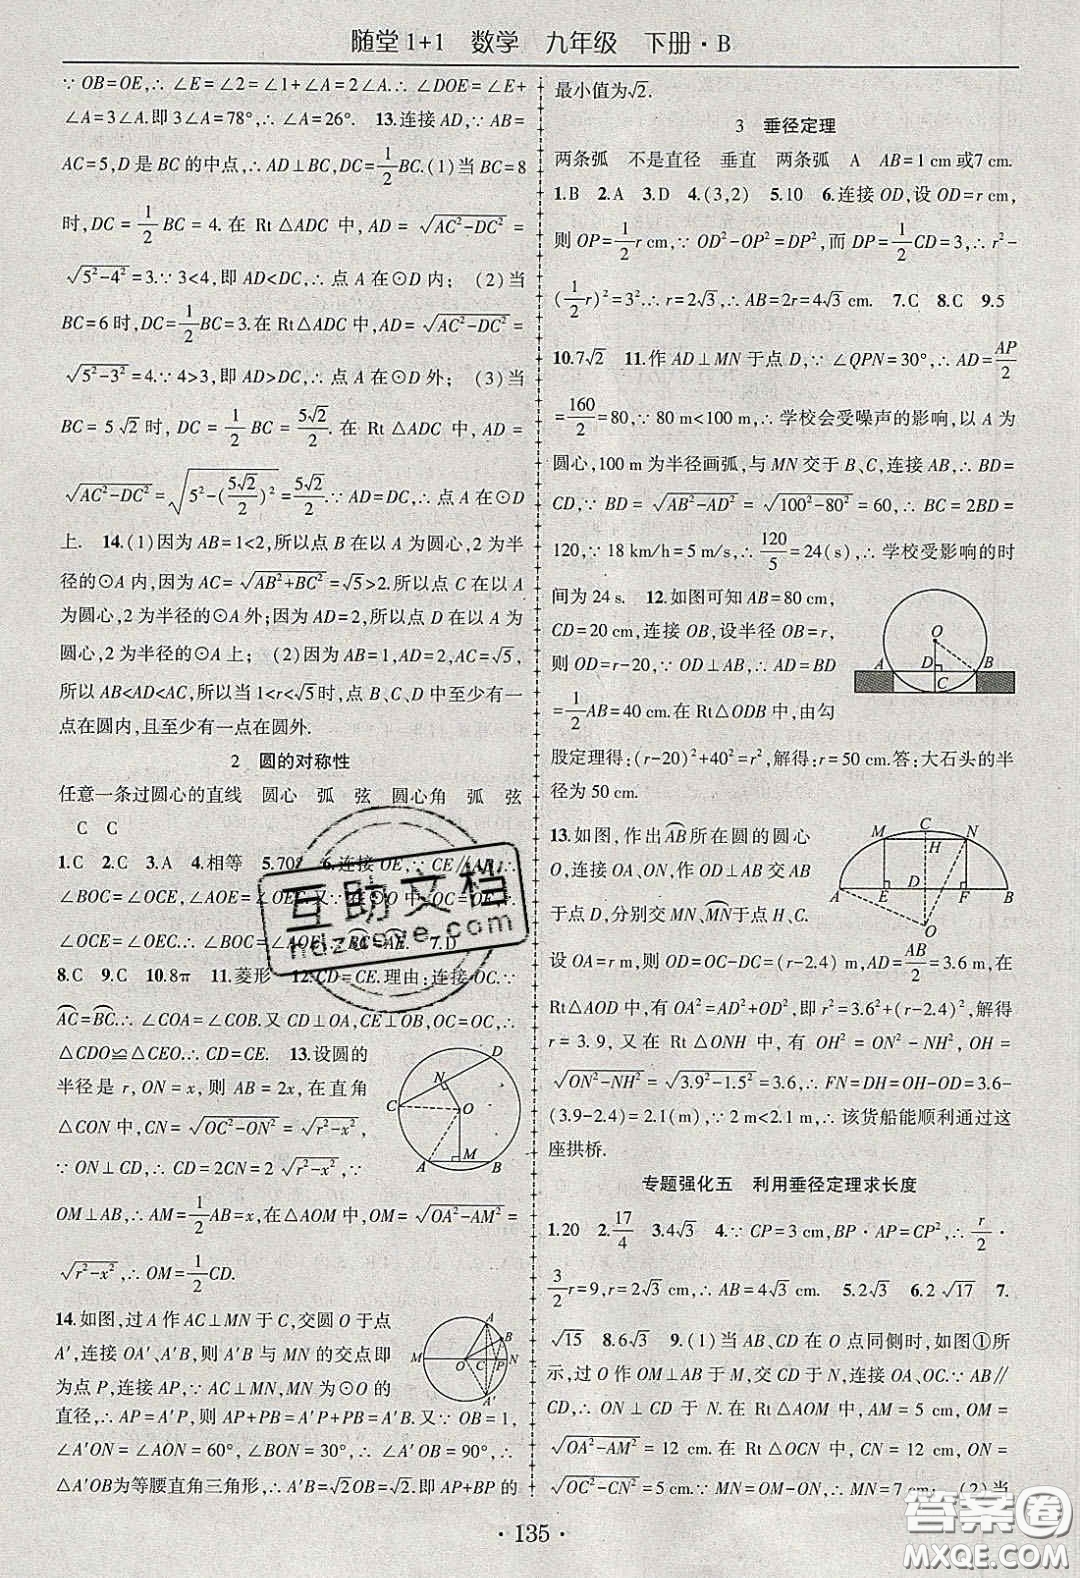 随堂1+1 数学 九年级 下册·B
∵OB=OE,∴∠E=∠2=∠1+∠A=2∠A.∴∠DOE=∠E+
∠A=3∠A.即3∠A=78°,∴∠A=26°. 13.连接AD,∵AB=
AC=5,D是BC的中点,∴AD⊥BC,DC=1/2BC.(1)当BC=8
时,DC=1/2BC=4.在Rt△ADC中,AD=√(AC²-DC²)=
√(5²-4²)=3.∵3<4,即AD<DC,∴点A在⊙D内; (2)当
BC=6时,DC=1/2BC=3.在Rt△ADC中,AD=√(AC²-DC²)=
√(5²-3²)=4.∵4>3,即AD>DC,∴点A在⊙D外; (3)当
BC=5√2时,DC=1/2BC=5√2/2.在Rt△ADC中,AD=
√(AC²-DC²)=√(5²-(5√2/2)²)=5√2/2.∵AD=DC,∴点A在⊙D
上. 14.(1)因为AB=1<2,所以点B在以A为圆心,2为半
径的⊙A内,因为AC=√(AB²+BC²)=√5>2.所以点C在以
A为圆心,2为半径的⊙A外;因为AD=2,所以点D在以A
为圆心,2为半径的⊙A上; (2)因为AB=1,AD=2,AC=√5,
所以AB<AD<AC,所以当1<r<√5时,点B、C、D中至少有一
点在圆内,且至少有一点在圆外.
2 圆的对称性
任意一条过圆心的直线 圆心 弧 弦 圆心角 弧 弦
C C
1.C 2.C 3.A 4.相等 5.70° 6.连接OE,∵CE//AB,∴
∠BOC=∠OCE,∠AOE=∠OEC.又∵在⊙O中,OC=OE,∴
∠OCE=∠OEC.∴∠BOC=∠AOE,∴BC=AE. 7.D
8.C 9.C 10.8π 11.菱形 12.CD=CE.理由:连接OC.∵
AC=BC.∴∠COA=∠COB.又CD⊥OA,CE⊥OB,OC=OC,∴
△CDO≌△CEO.∴CD=CE. 13.设圆的
半径是r,ON=x,则AB=2x,在直角
△CON中,CN=√(OC²-ON²)=√(r²-x²),
∵ON⊥CD,∴CD=2CN=2√(r²-x²).∵
OM⊥AB,∴AM=1/2AB=x,在△AOM中,OM=√(OA²-AM²)=
√(r²-x²),∴OM=1/2CD.
D
N
C
O
A
M
B
14.如图,过A作AC⊥MN于C,交圆O于点
A′,连接OA′、A′B,A′B与MN的交点即
为点P,连接AP,∵AC⊥MN,MN为⊙O的
直径,∴AP=A′P,则AP+BP=A′P+BP=A′B.又∵OB=1,
∠A′ON=∠AON=60°,∠BON=30°,∴∠A′OB=90°,∴
△A′OB为等腰直角三角形,∴A′B=√2OB=√2.即AP+BP的
A
B
M
O
C
P
N
A′
最小值为√2.
3 垂径定理
两条弧 不是直径 垂直 两条弧 A AB=1 cm或7 cm.
1.B 2.A 3.D 4.(3,2) 5.10 6.连接OD,设OD=r cm,
则OP=1/2r cm,∵OD²-OP²=DP²,而DP=1/2CD=3,∴r²-
(1/2r)²=3².∴r=2√3,∴AB=2r=4√3 cm. 7.C 8.C 9.5
10.7√2 11.作AD⊥MN于点D,∵∠QPN=30°,∴AD=AP/2
=160/2=80,∵80 m<100 m,∴学校会受噪声的影响,以A为
圆心,100 m为半径画弧,与MN交于B、C,连接AB,∴BD=
CD,∵BD=√(AB²-AD²)=√(100²-80²)=60,∴BC=2BD=
120,∵18 km/h=5 m/s,∴120/5=24(s),∴学校受影响的时
间为24 s. 12.如图可知AB=80 cm,
CD=20 cm,连接OB,设半径OB=r,
则OD=r-20,∵OD⊥AB,∴AD=BD
=1/2AB=40 cm.在Rt△ODB中,由勾
股定理得:(r-20)²+40²=r²,解得:r=50 cm.答:大石头的半
径为50 cm.
O
A
D
B
C
13.如图,作出AB所在圆的圆心
O,连接OA、ON,作OD⊥AB交AB
于点D,分别交MN、MN于点H、C.
设OA=r m,则OD=OC-DC=(r-2.4)m,AD=AB/2=3.6 m,在
Rt△AOD中,有OA²=AD²+OD²,即r²=3.6²+(r-2.4)²,解得
r=3.9,又在Rt△ONH中,有OH²=ON²-NH²,OH=
√(ON²-NH²)=√(3.9²-1.5²)=3.6,∴FN=DH=OH-OD=3.6-
(3.9-2.4)=2.1(m),∵2 m<2.1 m,∴该货船能顺利通过这
座拱桥.
C
M
N
H
A
E
D
F
B
O
专题强化五 利用垂径定理求长度
1.20 2.17/4 3.4√3 4.∵CP=3 cm,BP·AP=CP²,∴r/2·
3/2r=9,r=2√3 cm,∴AB=4√3 cm. 5.2√3 6.2√17 7.
√15 8.6√3 9.(1)当AB、CD在O点同侧时,如图①所
示,过O作OM⊥AB于M,交CD于N,连接OA、OC.∵AB//
CD,∴ON⊥CD于N.在Rt△AOM中,AM=5 cm,OM=
√(OA²-AM²)=12 cm.在Rt△OCN中,CN=12 cm,ON=
√(OC²-CN²)=5 cm,∵MN=OM-ON,∴MN=7 cm; (2)当
·135·
互助文档
hdzuoye.com
答案圈
MXQE.COM